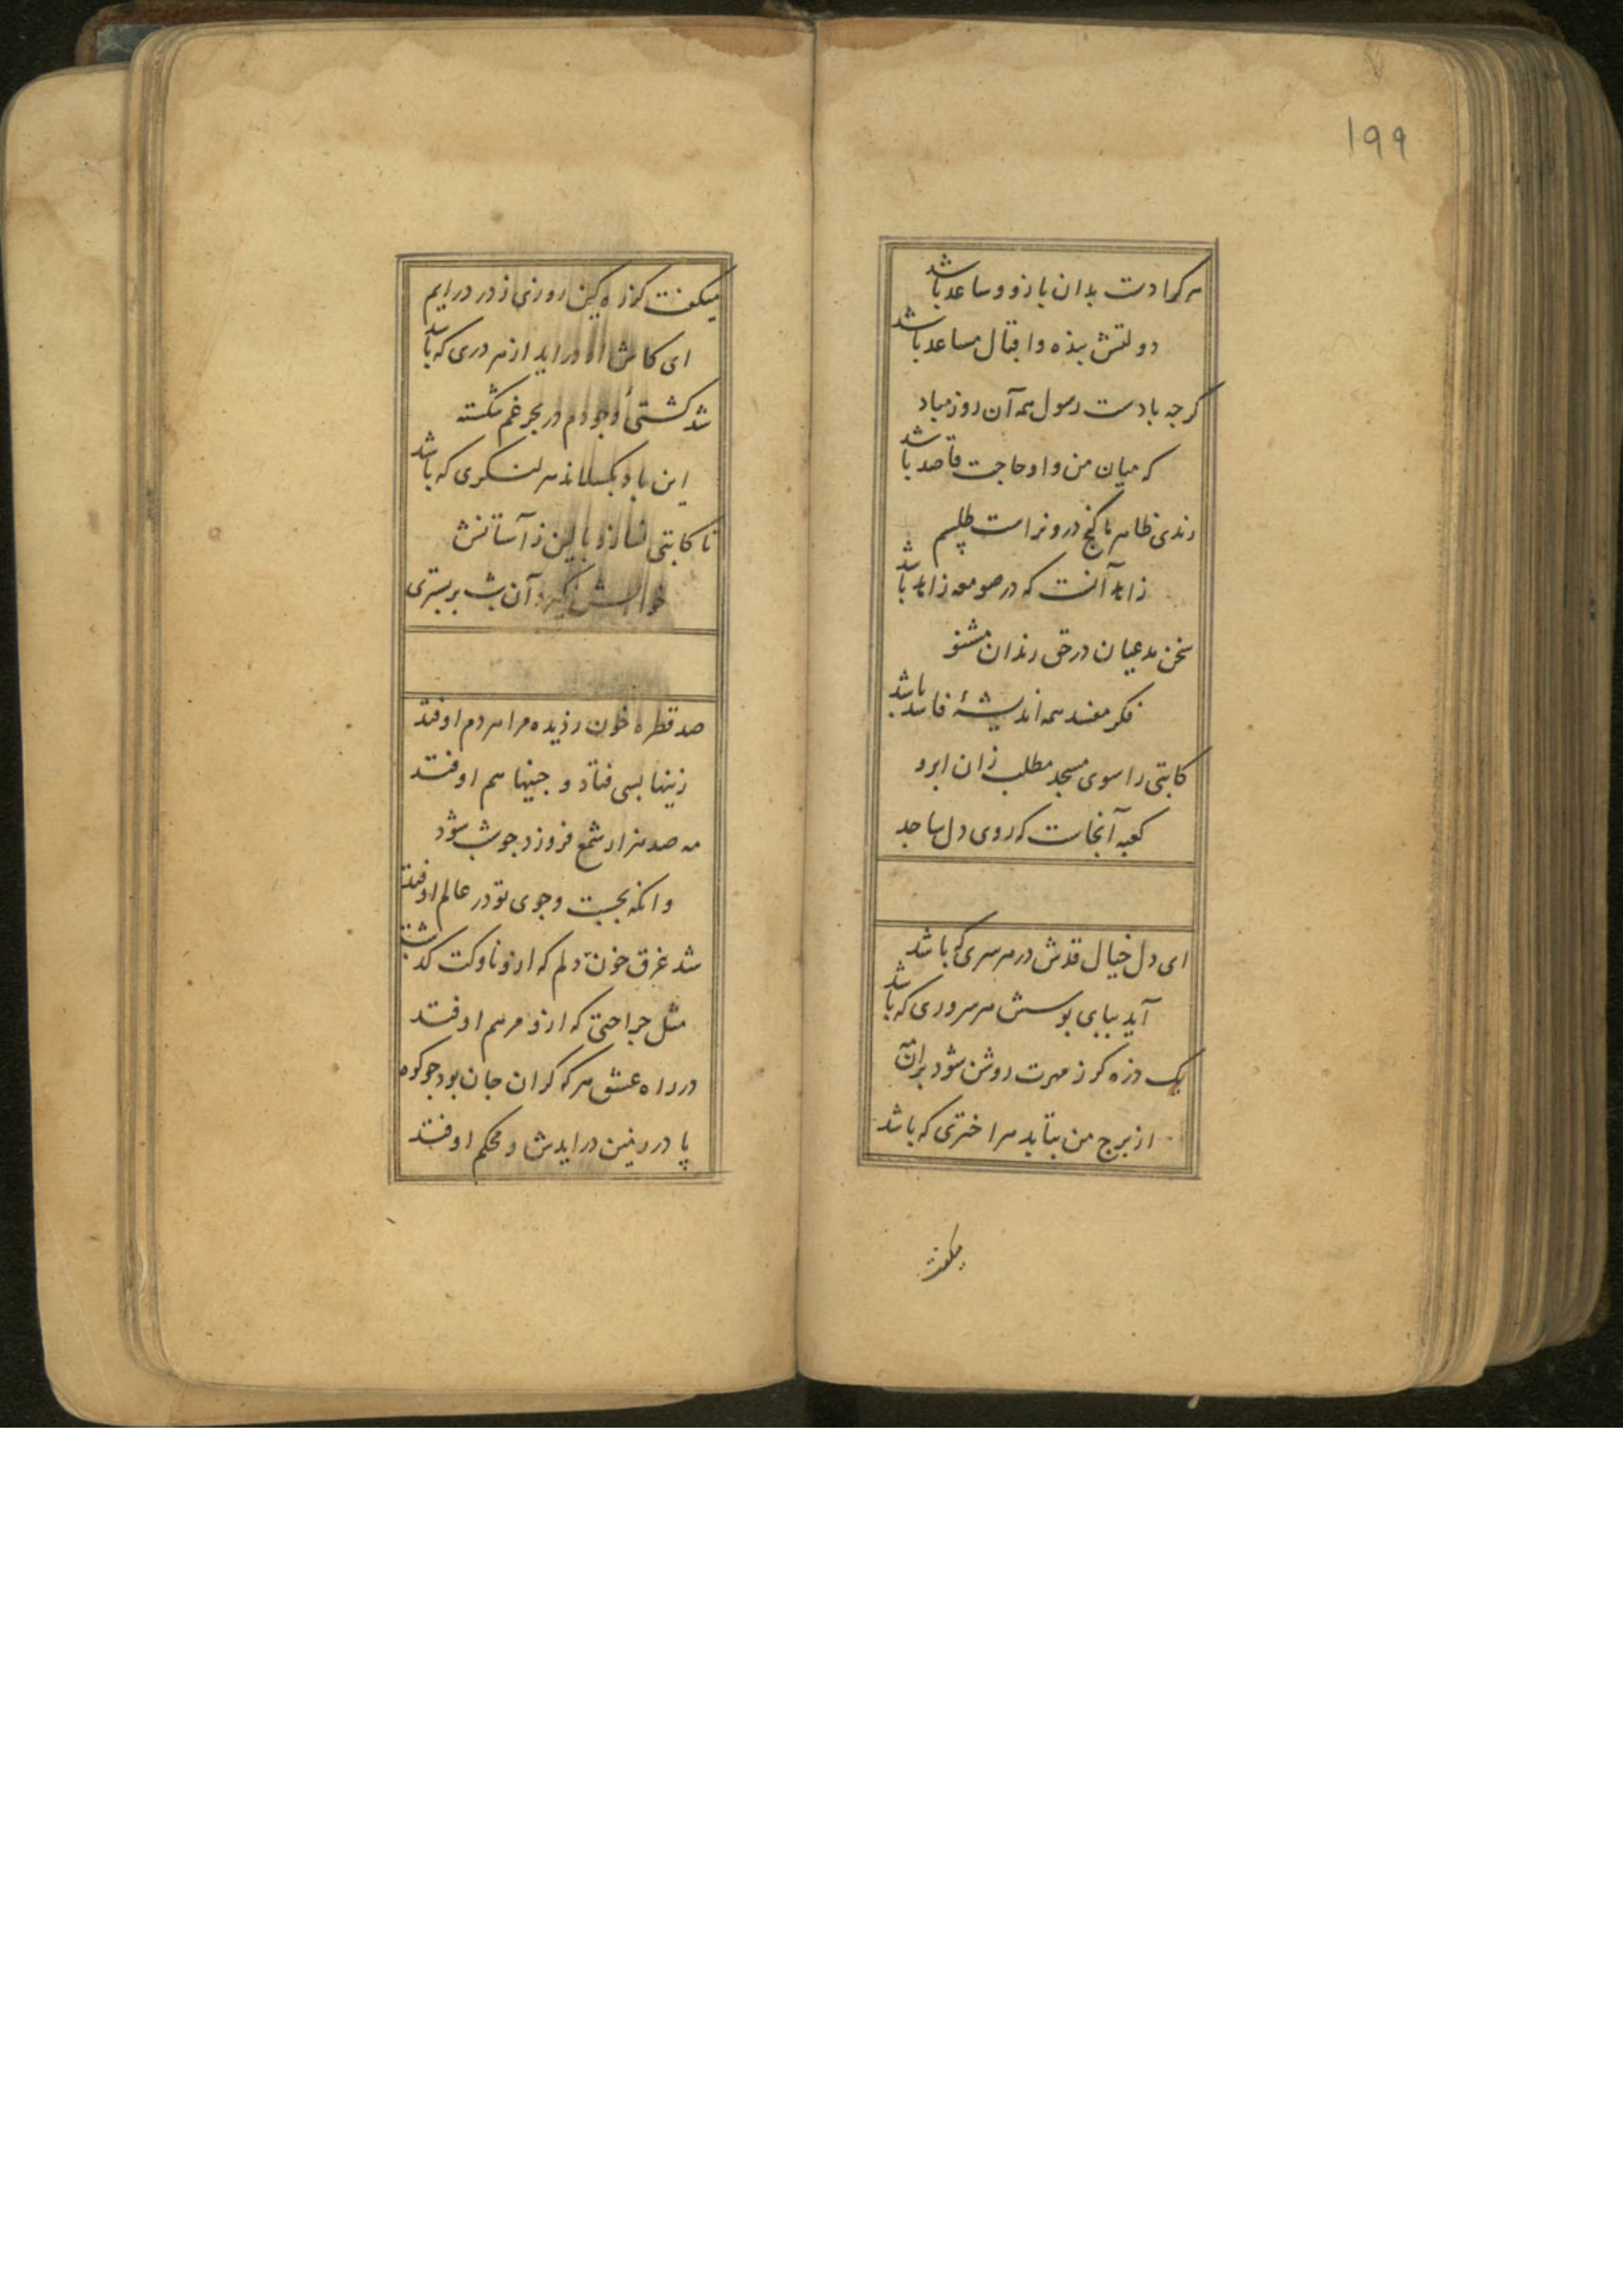 ۱۹۹
هرکرا دست بدان بازو و ساعد باشد
دولتش بنده و اقبال مساعد باشد
کرچه بادست رسول همه آن روز مباد
که میان من و او حاجت قاصد باشد
رندی ظاهر ما کنج درونراست طلسم
زاهد آنست که در صومعه زاهد باشد
سخن مدعیان در حق رندان مشنو
فکر مفسد همه اندیشهٔ فاسد باشد
کاتبی را سوی مسجد مطلب زان ابرو
کعبه آنجاست که روی دل ساجد
ای دل خیال قدش در هر سری که باشد
آید بپای بوسش هر سروری که باشد
یک ذره کر ز مهرت روشن شود بر آن مه
از برج من بتابد هر اختری که باشد
میکفت
میکفت کز ره کین روزی ز در درایم
ای کاش او دراید از هر دری که باشد
شد کشتیٔ وجودم در بحر غم شکسته
این باد بکسلاند هر لنکری که باشد
تا کاتبی نسازد بالین ز آستانش
خوابش نکیرد آن شب بر بستری
صد قطره خون ز دیده مرا هر دم اوفتد
زینها بسی فتاد و چنینها هم اوفتد
مه صد هزار شمع فروزد چو شب شود
وانکه بجست و جوی تو در عالم اوفتد
شد غرق خون دلم که ازو ناوکت کذشت
مثل جراحتی که ازو مرهم اوفتد
در راه عشق هر که کران جان بود چو کوه
پا در زمین درایدش و محکم اوفتد